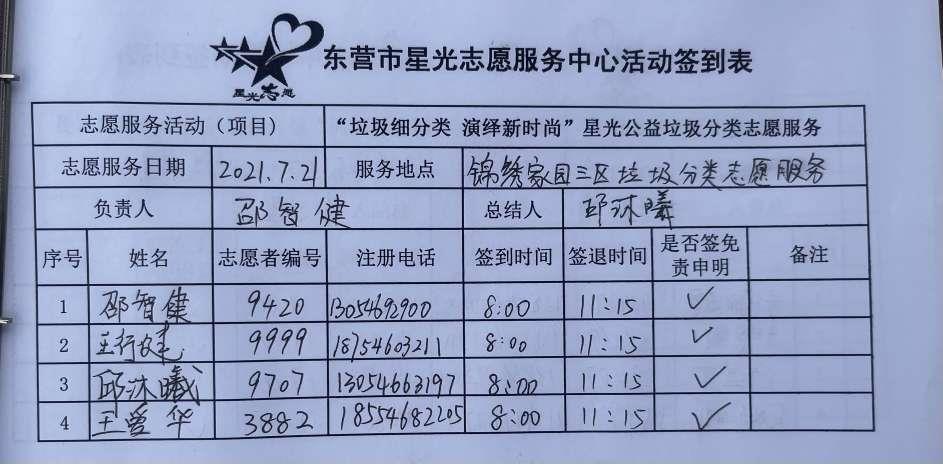 星光志愿
东营市星光志愿服务中心活动签到表
志愿服务活动（项目） “垃圾细分类 演绎新时尚”星光公益垃圾分类志愿服务
志愿服务日期 2021.7.21 服务地点 锦绣家园三区垃圾分类志愿服务
负责人 邵智健 总结人 邱沐曦
序号 姓名 志愿者编号 注册电话 签到时间 签退时间 是否签免 备注
责申明
1 邵智健 9420 13054692900 8:00 11:15 ✓
2 王行建 9999 18754603211 8:00 11:15 ✓
3 邱沐曦 9707 13054663197 8:00 11:15 ✓
4 王爱华 3882 18554682205 8:00 11:15 ✓